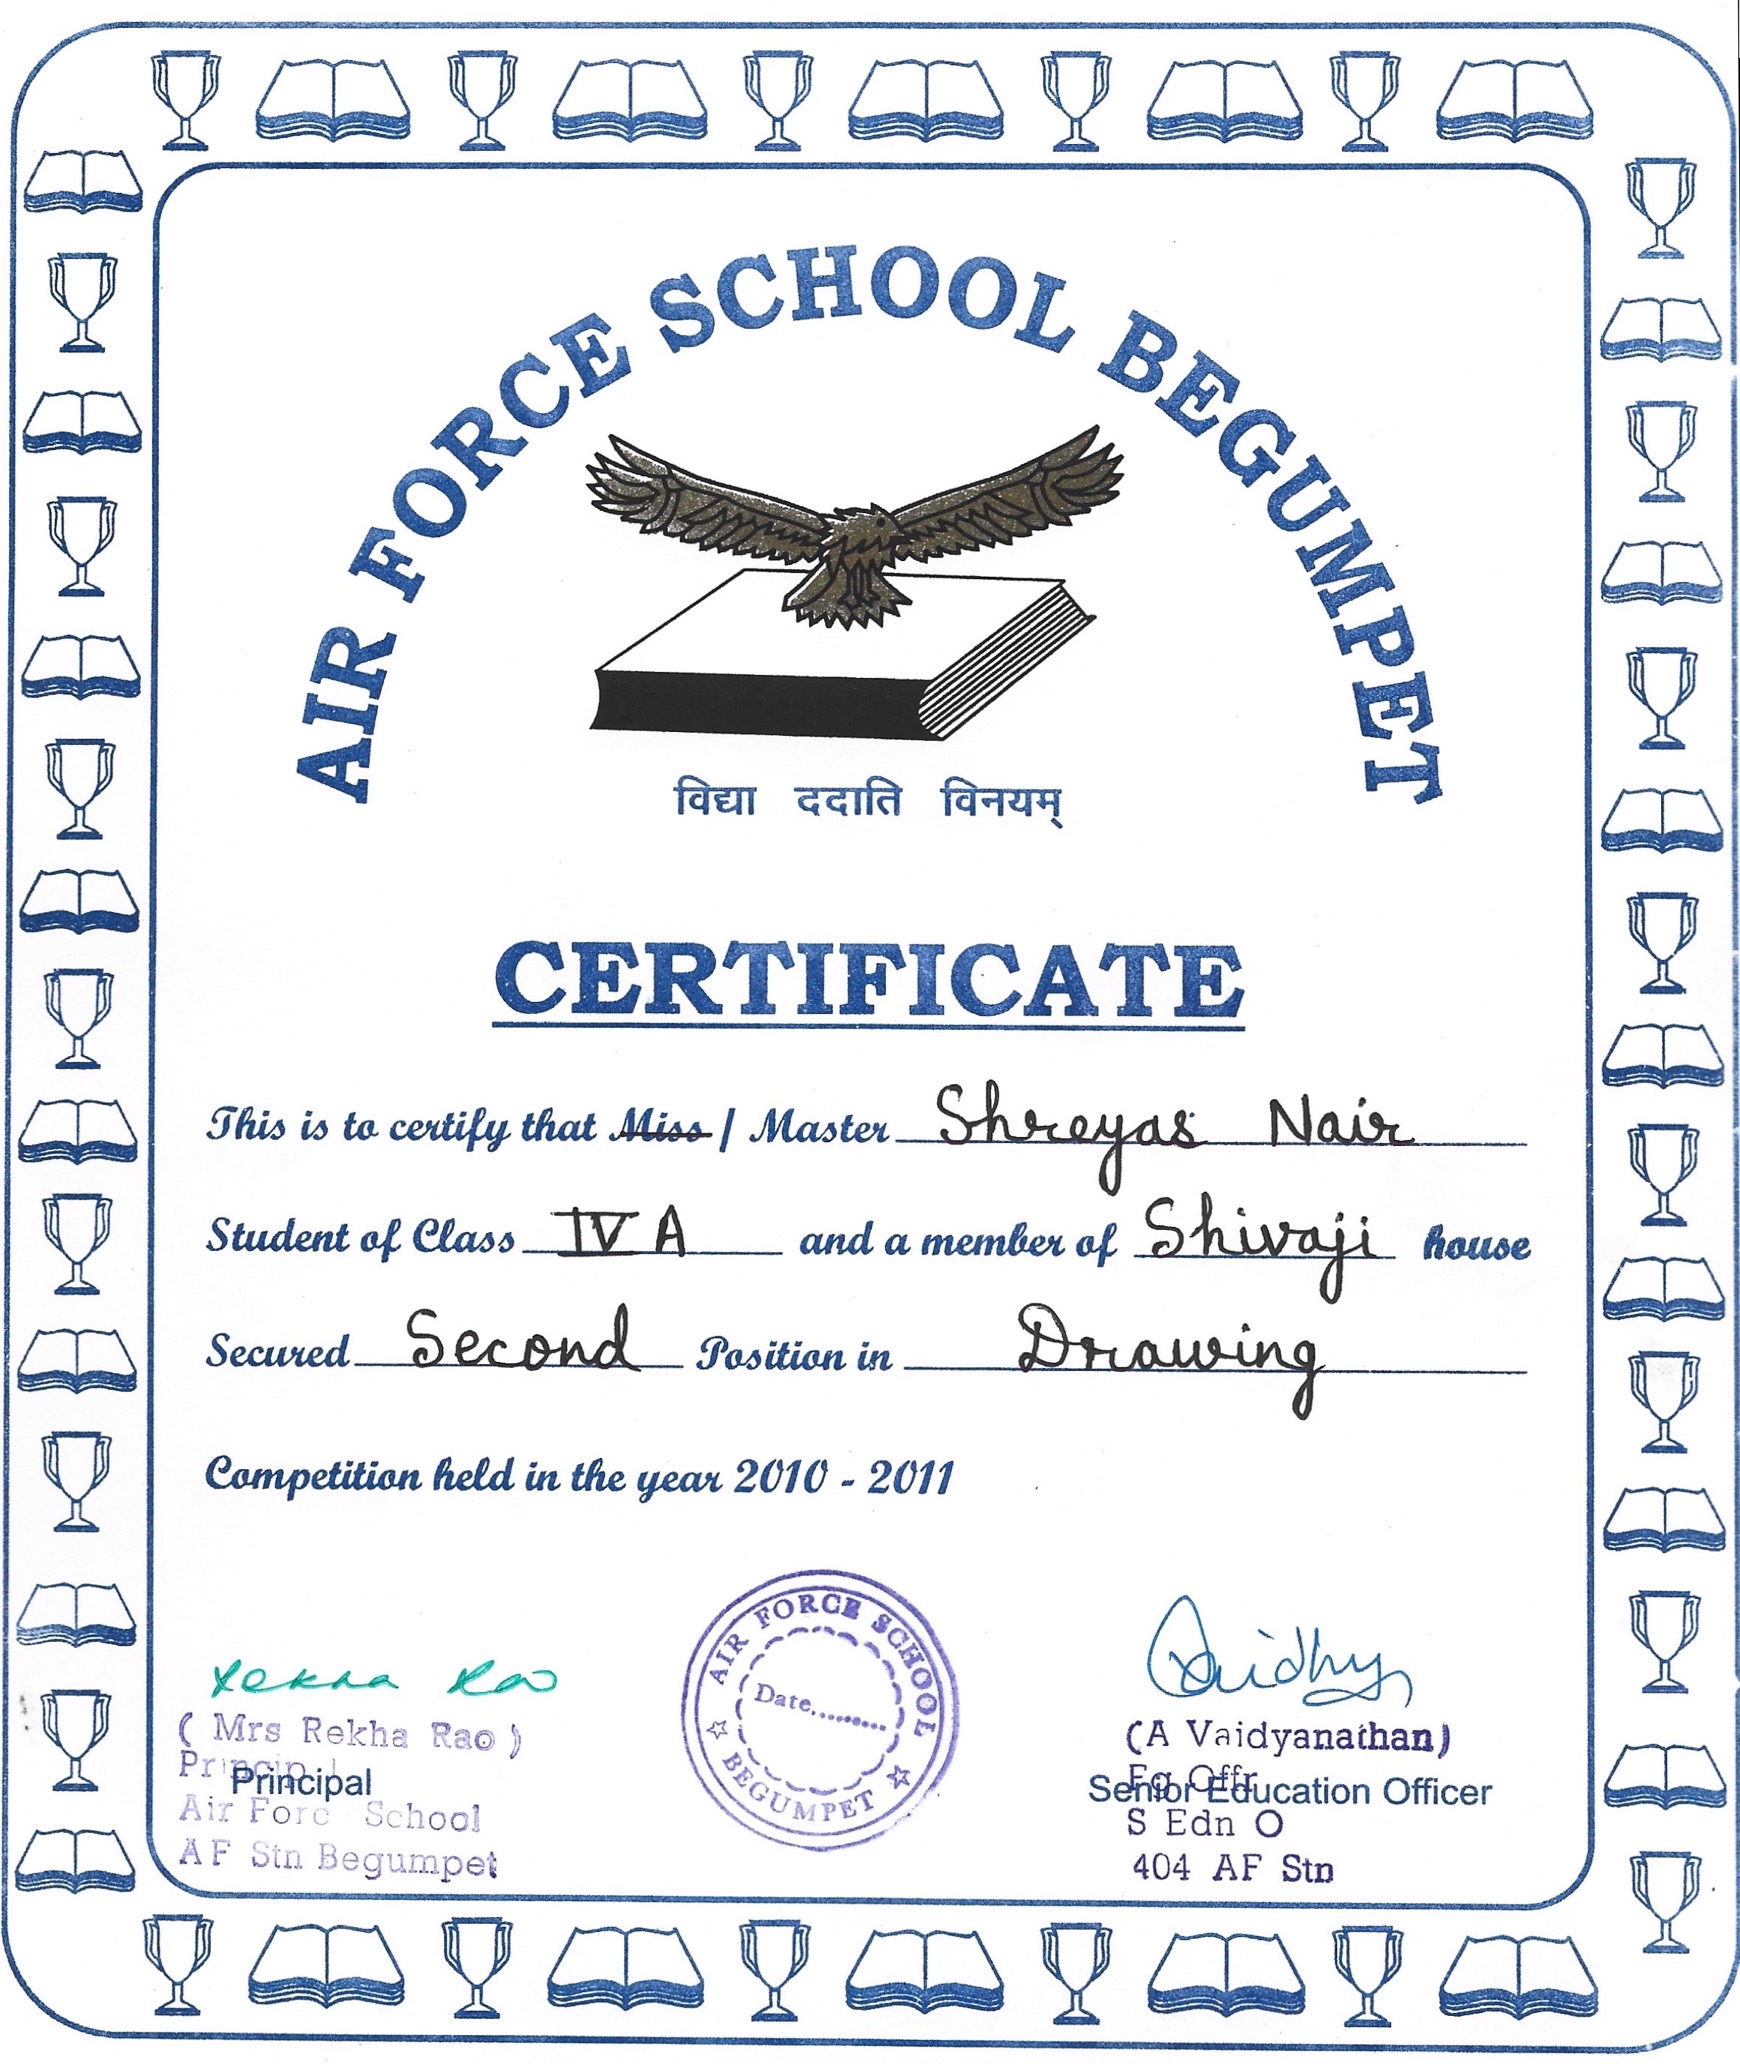 AIR FORCE SCHOOL BEGUMPET
विद्या ददाति विनयम्
CERTIFICATE
This is to certify that Miss / Master Shreyas Nair
Student of Class IV A and a member of Shivaji house
Secured Second Position in Drawing
Competition held in the year 2010 - 2011
Rekha Rao
(Mrs Rekha Rao)
Principal
Principal
Air Forc School
AF Stn Begumpet
AIR FORCE SCHOOL
Date.........
BEGUMPET
(A Vaidyanathan)
Fg Offr
Senior Education Officer
S Edn O
404 AF Stn